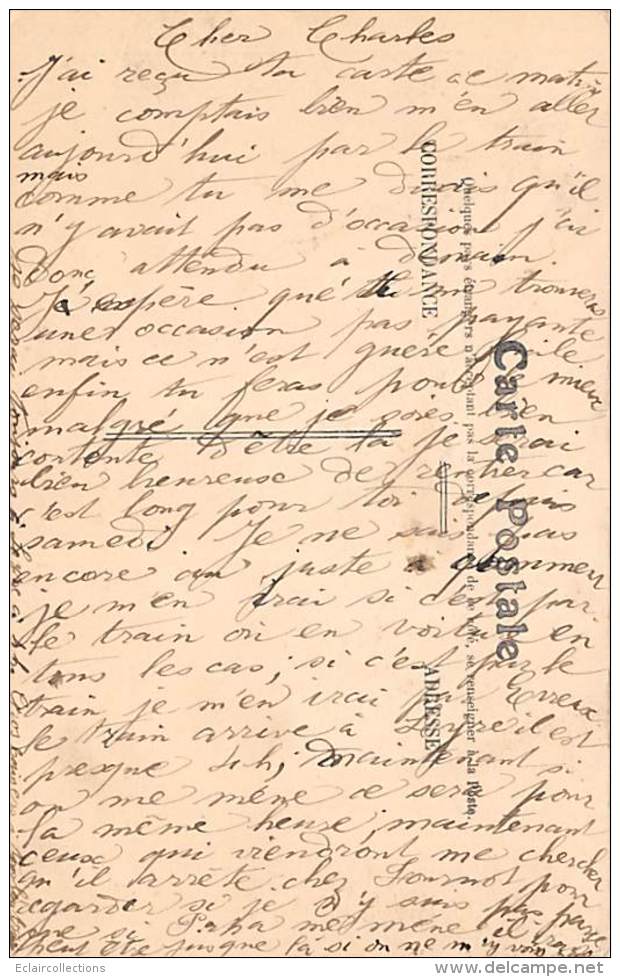 Cher Charles
J'ai reçu ta carte ce matin
je comptais bien m'en aller
aujourd'hui par le train
mais
comme tu me disais qu'il
n'y avait pas d'occasion j'ai
donc attendu à demain.
J'espère que tu me trouveras
une occasion pas payante
mais ce n'est guère facile
enfin tu feras pour le mieux
malgré que je sois bien
contente d'être là je serai
bien heureuse de rentrer car
c'est long pour toi depuis
samedi. Je ne sais pas
encore au juste comment
je m'en irai si c'est par
le train ou en voiture en
tous les cas; si c'est par le
train je m'en irai par Evreux
le train arrive à il est
presque 4h; maintenant si
on me mène ce sera pour
la même heure, maintenant
ceux qui viendront me chercher
qu'il arrête chez pour
regarder si je n'y suis pas parce
que si Papa me mène il ira
peut être jusque là si on ne m'y voit
Carte Postale
CORRESPONDANCE
ADRESSE
Quelques pays étrangers n'acceptant pas la correspondance de ce côté, se renseigner à la Poste.
Eclaircollections
www.delcampe.net